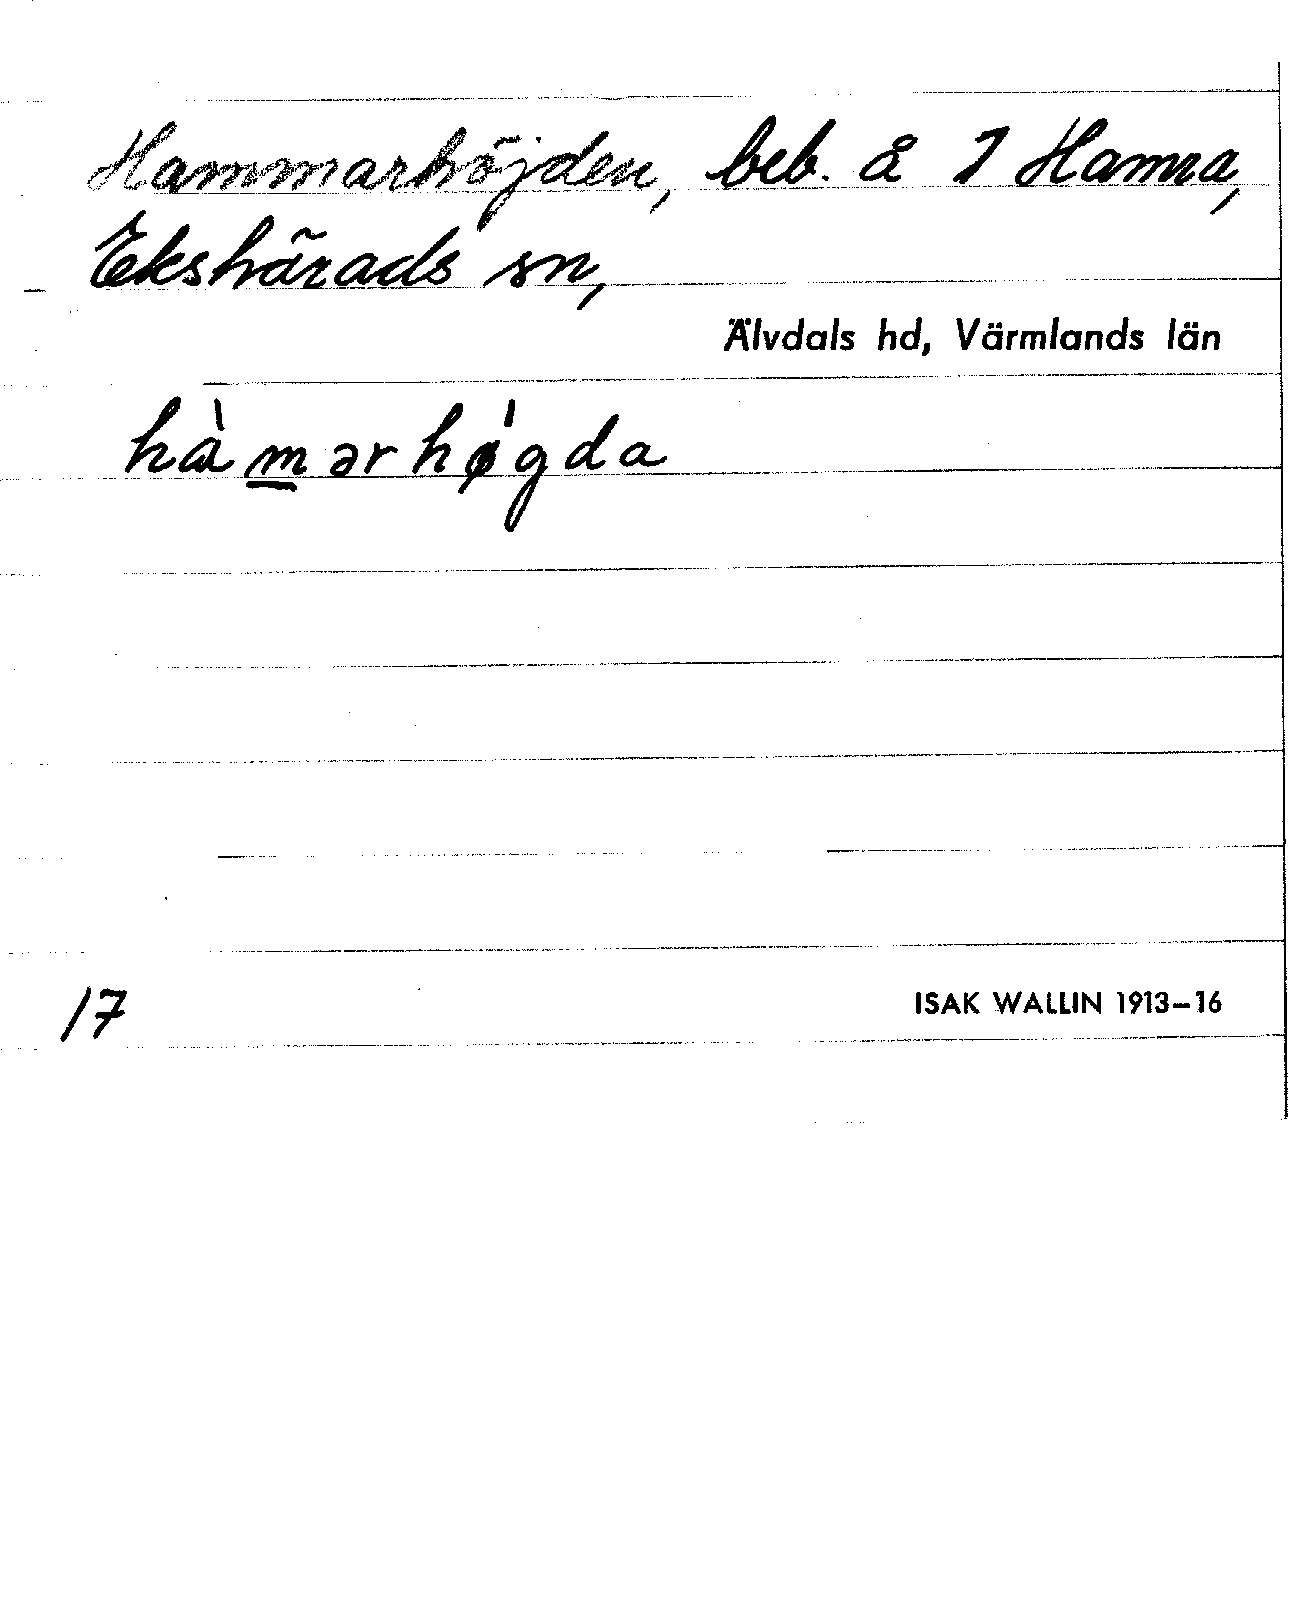 Hammarhöjden, beb. å 7 Hamra,
Ekshärads sn,
Älvdals hd, Värmlands län
hàm̲ərhǿgda
17
ISAK WALLIN 1913–16